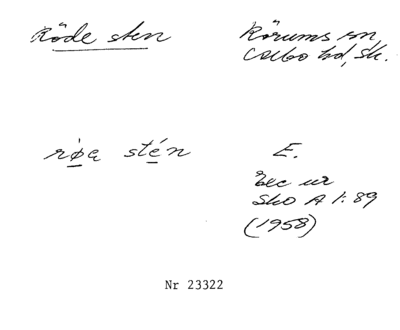 Röde sten
Rörums sn,
Albo hd, Sk.
røa stén
E.
Exc ur
Sko A 1:89
(1958)
Nr 23322